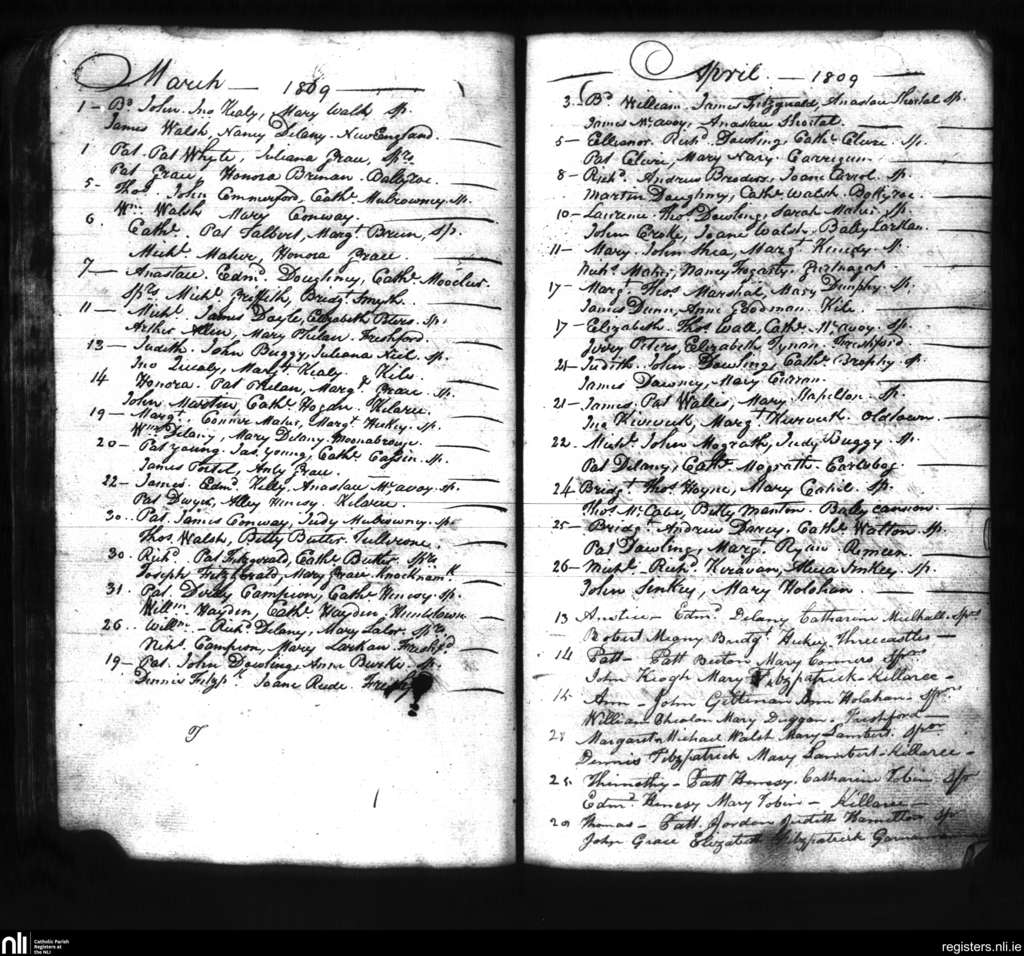 March — 1809
1 — Bd. John. Jno Healy, Mary Walsh sp.
James Walsh, Nancy Delany. New England.
1 Pat. Pat Whyte, Juliana Grace, Sprs.
Pat Grace, Honora Brenan. Ballyroe.
5 - Thos. John Commerford, Cathe. Mulrowney. sp.
Wm. Walsh Mary Conway.
6 Cathe. Pat Talbert, Margt. Bruin, sp.
Michl. Maher, Honora Grace.
7 — Anastace. Edmd. Doughney, Cathe.
Sprs. Michl. Griffith, Bridgt. Smyth.
11 — Michl. James Doyle, Elizabeth Peters. sp.
Arthur Allen, Mary Phelan. Freshford.
13 — Judith. John Buggy, Juliana Neil. sp.
Jno Mealy. Margt. Healy. Kile.
14 Honora. Pat Phelan, Margt. Grace. sp.
John Martin, Cathe. Hogan. Kilaree.
19 — Margt. Conner Maher, Margt. Hickey. sp.
Wm. Delany, Mary Delany. Moonabrouge.
20 — Pat young. Jas. young, Cathe. Cassin. sp.
James Portel, Anty Grace.
22 — James. Edmd. Kelly. Anastace McAvoy. sp.
Pat Dwyer, Alley Henesy. Kilaree.
30. Pat. James Conway, Judy Mulrowney. sp.
Thos. Walsh, Betty Butler. Tullerone.
30. Richd. Pat Fitzgerald, Cathe. Butler. Sprs.
Joseph Fitzgerald, Mary Grace. Knocknamk.
31. Pat. Darby Campion, Cathe. Henesy. sp.
Willm. Hayden, Cathe. Hayden. Huntstown.
26. Willm. — Richd. Delany, Mary Lalor. Sprs.
Nichs. Campion, Mary Larkan. Freshfd.
19 — Pat. John Dowling, Anne Burke. sp.
Dennis Fitzpk. Joane Rude.
April. — 1809
3. — Bd. William. James Fitzgerald, Anastace Shortal sp.
James McAvoy, Anastace Shortal.
5 — Ellianor. Richd. Dowling, Cathe. Clere. sp.
Pat Clere, Mary Nary. Carrigeen.
8 — Richd. Andrew Broder, Joane Carrol. sp.
Martin Doughney, Cathe. Walsh. Ballyroe.
10 — Laurence. Thos. Dowling, Sarah Maher. sp.
John Croke, Joane Walsh. Ballylarkan.
11 — Mary. John Shea, Margt. Kenedy. sp.
Nichs. Maher, Nancy Fogarty.
17 — Margt. Thos. Marshal, Mary Dunphy. sp.
James Dunn, Anne Goodman. Kile.
17 — Elizabeth. Thos. Wall, Cathe. McAvoy. sp.
Jerry Peters, Elizabeth Tynan. Freshford.
21 — Judith. John Dowling, Cathe. Brophy. sp.
James Downey, Mary Curran.
21 — James. Pat Wallis, Mary Hapilton. sp.
Jno Kirwick, Margt. Kirwick. Oldtown.
22. Michl. John Mograth, Judy Buggy. sp.
Pat Delany, Cathe. Mograth. Earlsbog.
24 Bridgt. Thos. Hoyne, Mary Cahil. sp.
Thos. McCabe, Betty Manton. Ballycannon.
25 — Bridgt. Andrew Darcy, Cathe. Walton. sp.
Pat Dowling, Margt. Ryan. Rimeen.
26 — Michl. Richd. Keravan, Alicia Senkey. sp.
John Senkey, Mary Holohan.
13 Anstice — Edmd. Delany Catharine Mulhall. Sprs
Robert Meany Bridgt. Hickey Threecastles —
14 Patt — Patt Breton Mary Conners Sprs
John Keogh Mary Fitzpatrick — Killaree —
Ann — John Ann Holahan — Sprs
William Phealan Mary Duggan. Freshford —
28 Margaret — Michael Walsh Mary Lambert. Sprs
Dennis Fitzpatrick Mary Lambert — Killaree —
25 Thimothy — Patt Henesy. Catharine Tobin Spr
Edmd. Henesy Mary Tobin — Killaree —
29 Thomas — Patt. Jordon Judith Hamilton Spr
John Grace Elizabeth Fitzpatrick
nli Catholic Parish Registers at the NLI
registers.nli.ie